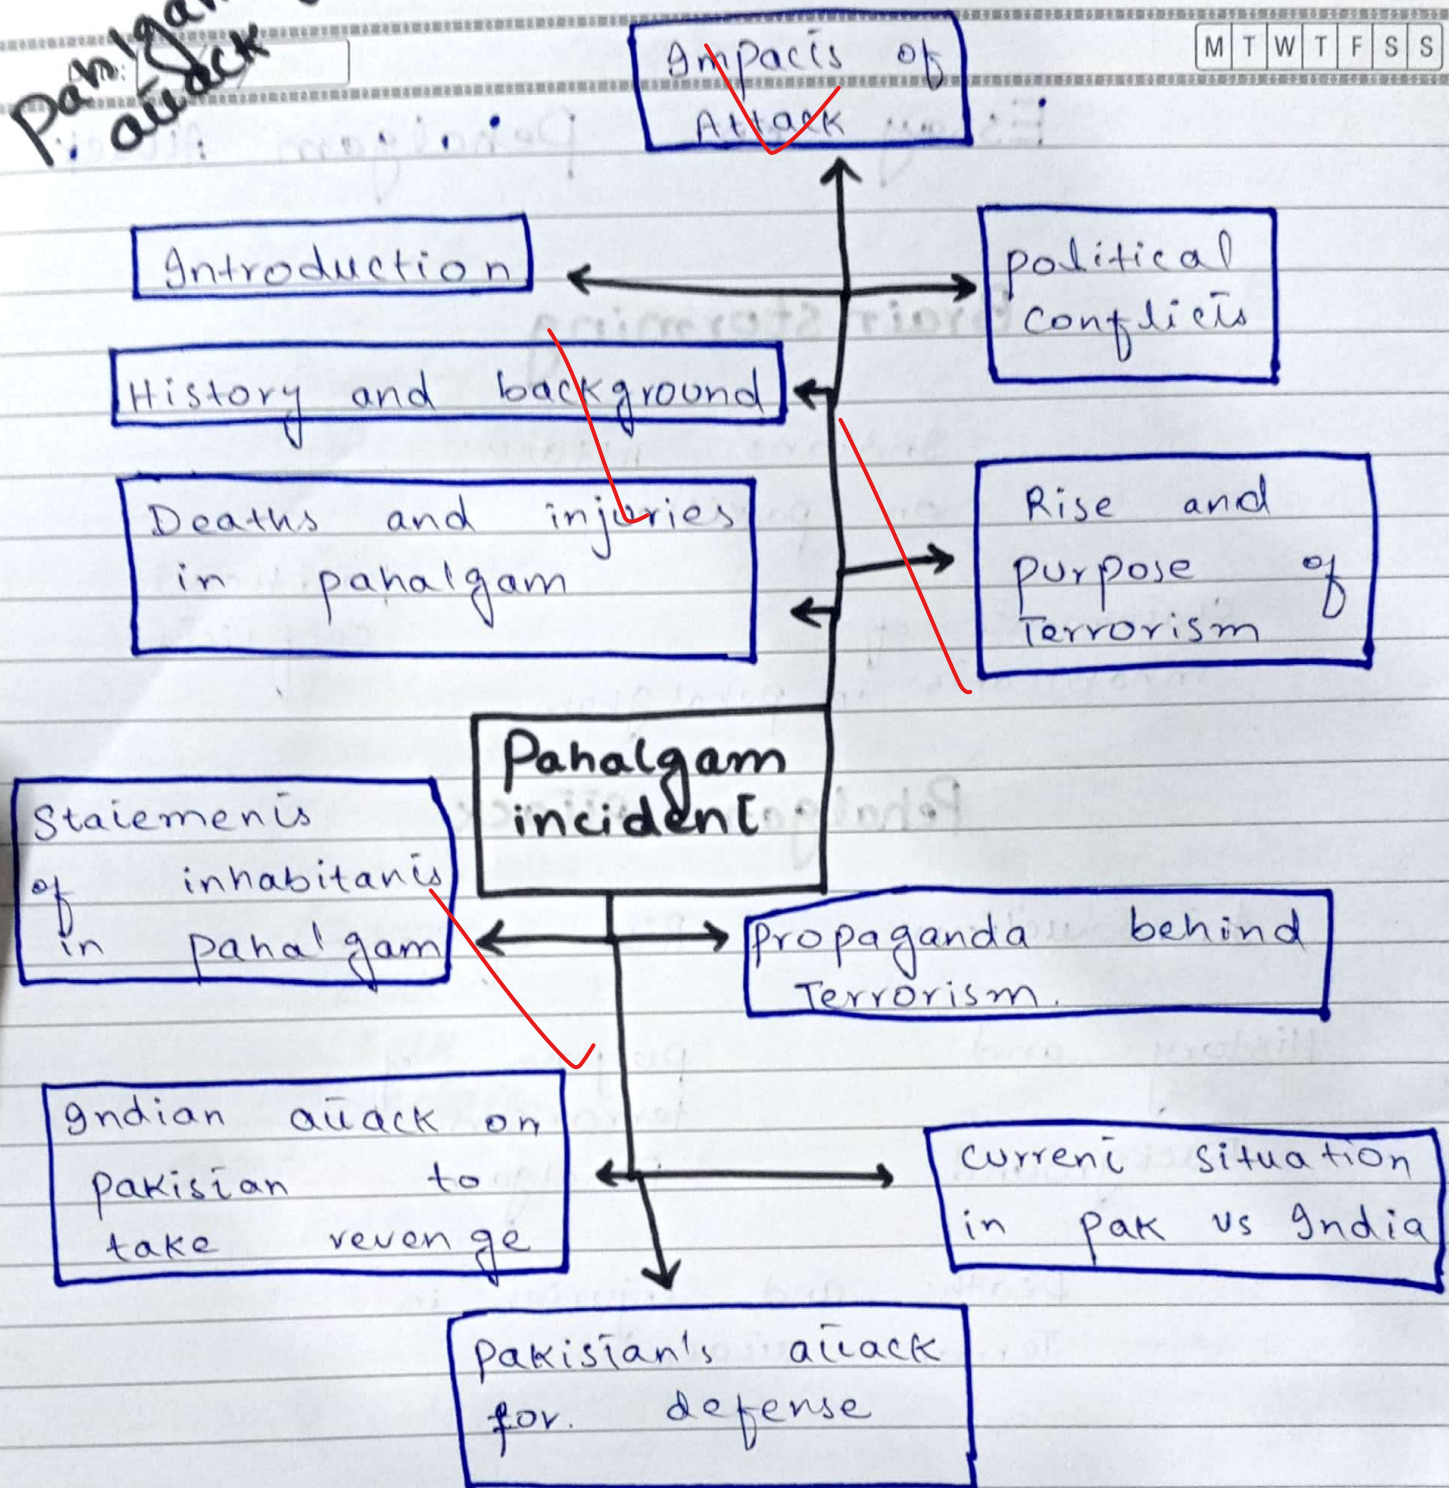 Pahalgam
attack
M T W T F S S
Impacts of
Attack
Introduction
political
conflicts
History and background
Deaths and injuries
in pahalgam
Rise and
purpose of
Terrorism
Pahalgam
incident
Statements
of inhabitants
in pahalgam
propaganda behind
Terrorism.
Indian attack on
pakistan to
take revenge
current situation
in pak vs India
pakistan's attack
for. defense